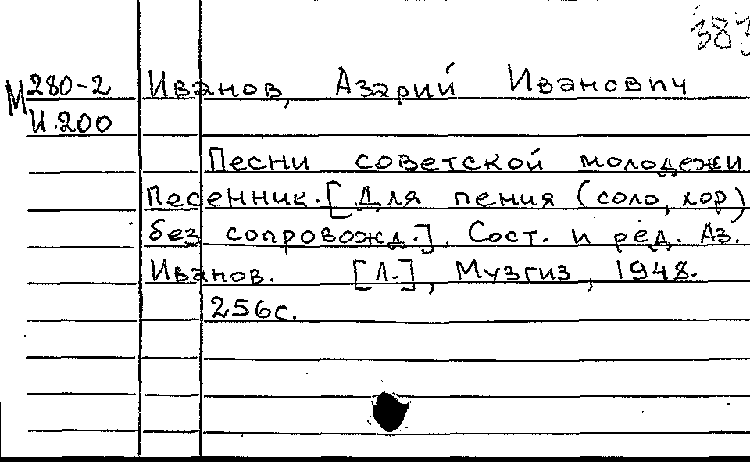 383
М 280-2 Иванов, Азарий Иванович
И.200
Песни советской молодежи
Песенник. [Для пения (соло, хор)
без сопровожд.]. Сост. и ред. Аз.
Иванов. [Л.], Музгиз, 1948.
256с.